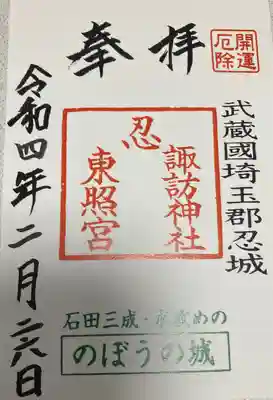 開運
厄除
奉拝
武蔵國埼玉郡忍城
諏訪神社
忍
東照宮
令和四年二月二六日
石田三成・水攻めの
のぼうの城